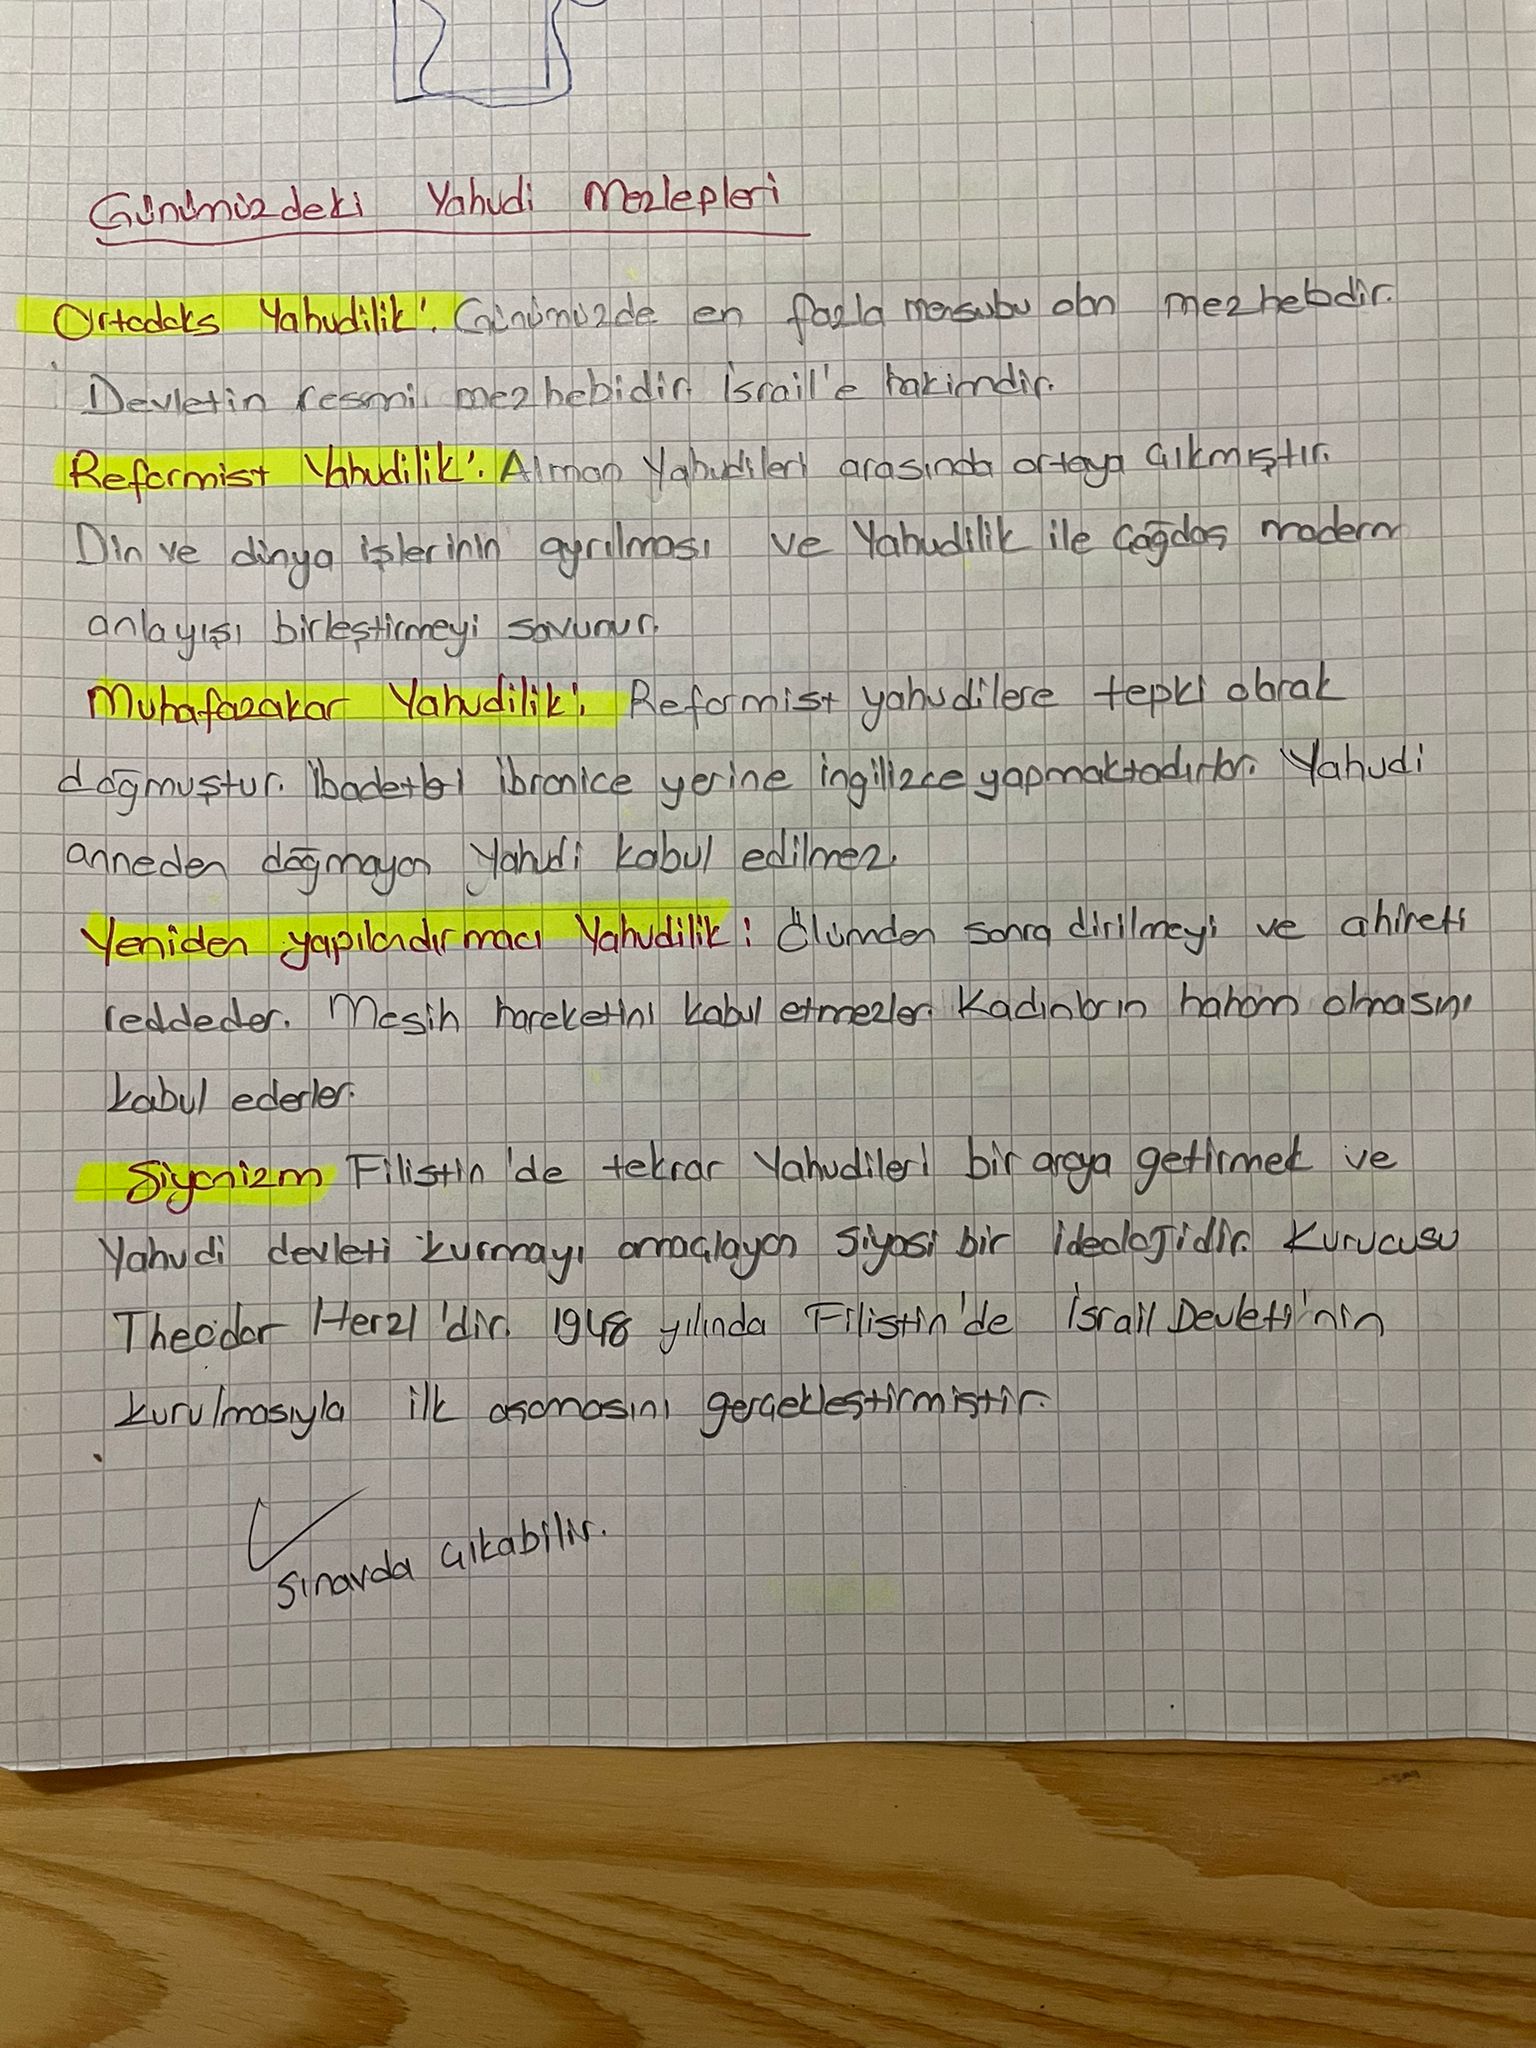 Günümüzdeki Yahudi Mezlepleri
Ortodoks Yahudilik: Günümüzde en fazla mensubu olan mezhebdir.
Devletin resmi mezhebidir. İsrail'e hakimdir.
Reformist Yahudilik: Alman Yahudileri arasında ortaya çıkmıştır.
Din ve dünya işlerinin ayrılması ve Yahudilik ile çağdaş modern
anlayışı birleştirmeyi savunur.
Muhafazakar Yahudilik: Reformist yahudilere tepki olarak
doğmuştur. İbadetleri ibranice yerine ingilizce yapmaktadırlar. Yahudi
anneden doğmayan Yahudi kabul edilmez.
Yeniden yapılandırmacı Yahudilik: Ölümden sonra dirilmeyi ve ahireti
reddeder. Mesih hareketini kabul etmezler. Kadınların haham olmasını
kabul ederler.
Siyonizm Filistin'de tekrar Yahudileri bir araya getirmek ve
Yahudi devleti kurmayı amaçlayan siyasi bir ideolojidir. Kurucusu
Theodor Herzl'dir. 1948 yılında Filistin'de İsrail Devleti'nin
kurulmasıyla ilk aşamasını gerçekleştirmiştir.
Sınavda çıkabilir.